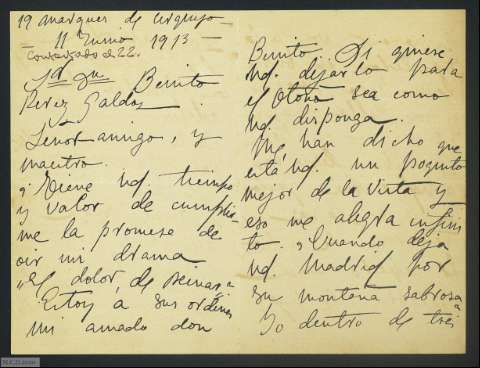 19 Marques de Urquijo
— 11 Junio 1913 —
Contestado el 22.
Sr. Dn. Benito
Perez Galdos
Señor amigo, y
maestro.
¿Tiene Vd tiempo
y valor de cumplir
me la promesa de
oir mi drama
"el dolor de Reinar"
Estoy a sus ordenes
mi amado don
Benito. Si quiere
Vd. dejarlo para
el Otoño sea como
Vd. disponga.
Me han dicho que
está Vd. un poquito
mejor de la vista y
eso me alegra infini
to. ¿Cuando deja
Vd. Madrid por
su montaña sabrosa
Yo dentro de tres